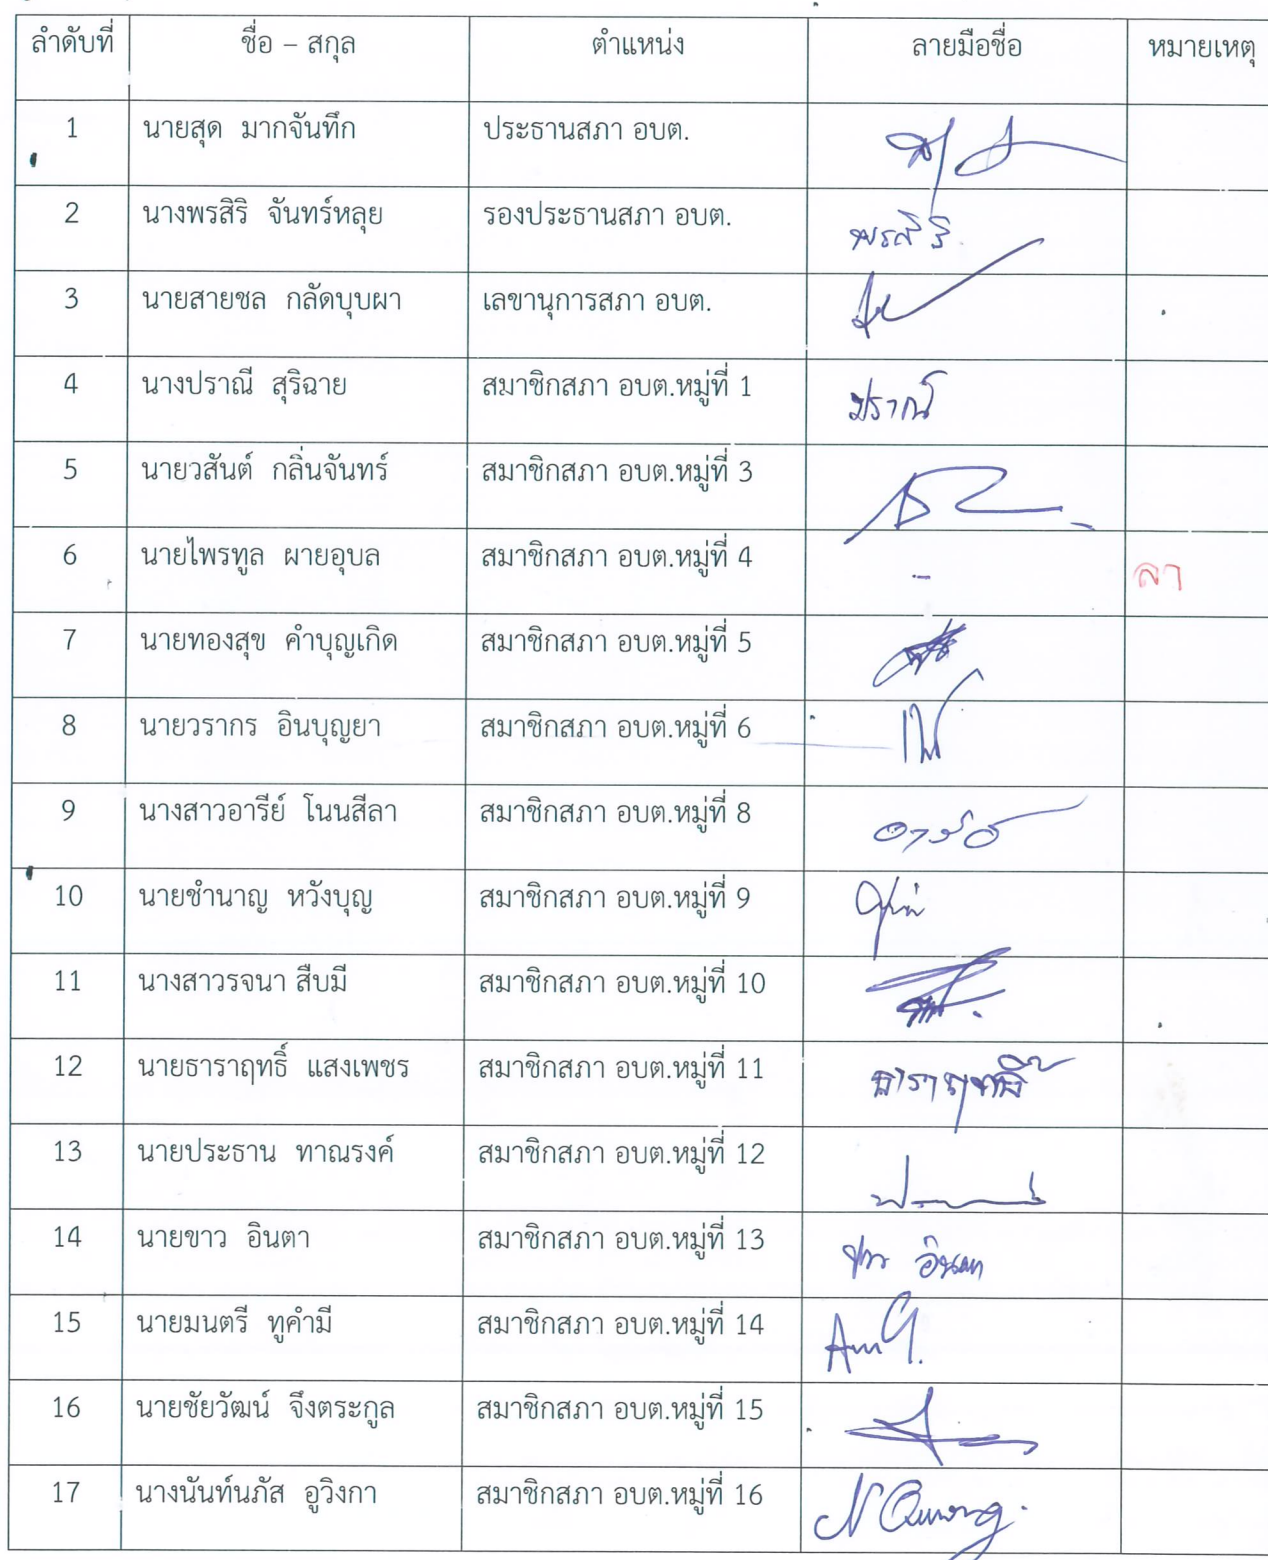 ลำดับที่ ชื่อ – สกุล ตำแหน่ง ลายมือชื่อ หมายเหตุ
1 นายสุด มากจันทึก ประธานสภา อบต.
2 นางพรสิริ จันทร์หลุย รองประธานสภา อบต. พรสิริ
3 นายสายชล กลัดบุบผา เลขานุการสภา อบต.
4 นางปราณี สุริฉาย สมาชิกสภา อบต.หมู่ที่ 1 ปราณี
5 นายวสันต์ กลิ่นจันทร์ สมาชิกสภา อบต.หมู่ที่ 3
6 นายไพรทูล ผายอุบล สมาชิกสภา อบต.หมู่ที่ 4 - ลา
7 นายทองสุข คำบุญเกิด สมาชิกสภา อบต.หมู่ที่ 5
8 นายวรากร อินบุญยา สมาชิกสภา อบต.หมู่ที่ 6
9 นางสาวอารีย์ โนนสีลา สมาชิกสภา อบต.หมู่ที่ 8 อารีย์
10 นายชำนาญ หวังบุญ สมาชิกสภา อบต.หมู่ที่ 9
11 นางสาวรจนา สืบมี สมาชิกสภา อบต.หมู่ที่ 10
12 นายธาราฤทธิ์ แสงเพชร สมาชิกสภา อบต.หมู่ที่ 11 ธาราฤทธิ์
13 นายประธาน ทาณรงค์ สมาชิกสภา อบต.หมู่ที่ 12
14 นายขาว อินตา สมาชิกสภา อบต.หมู่ที่ 13 ขาว อินตา
15 นายมนตรี ทูคำมี สมาชิกสภา อบต.หมู่ที่ 14
16 นายชัยวัฒน์ จึงตระกูล สมาชิกสภา อบต.หมู่ที่ 15
17 นางนันท์นภัส อูวิงกา สมาชิกสภา อบต.หมู่ที่ 16